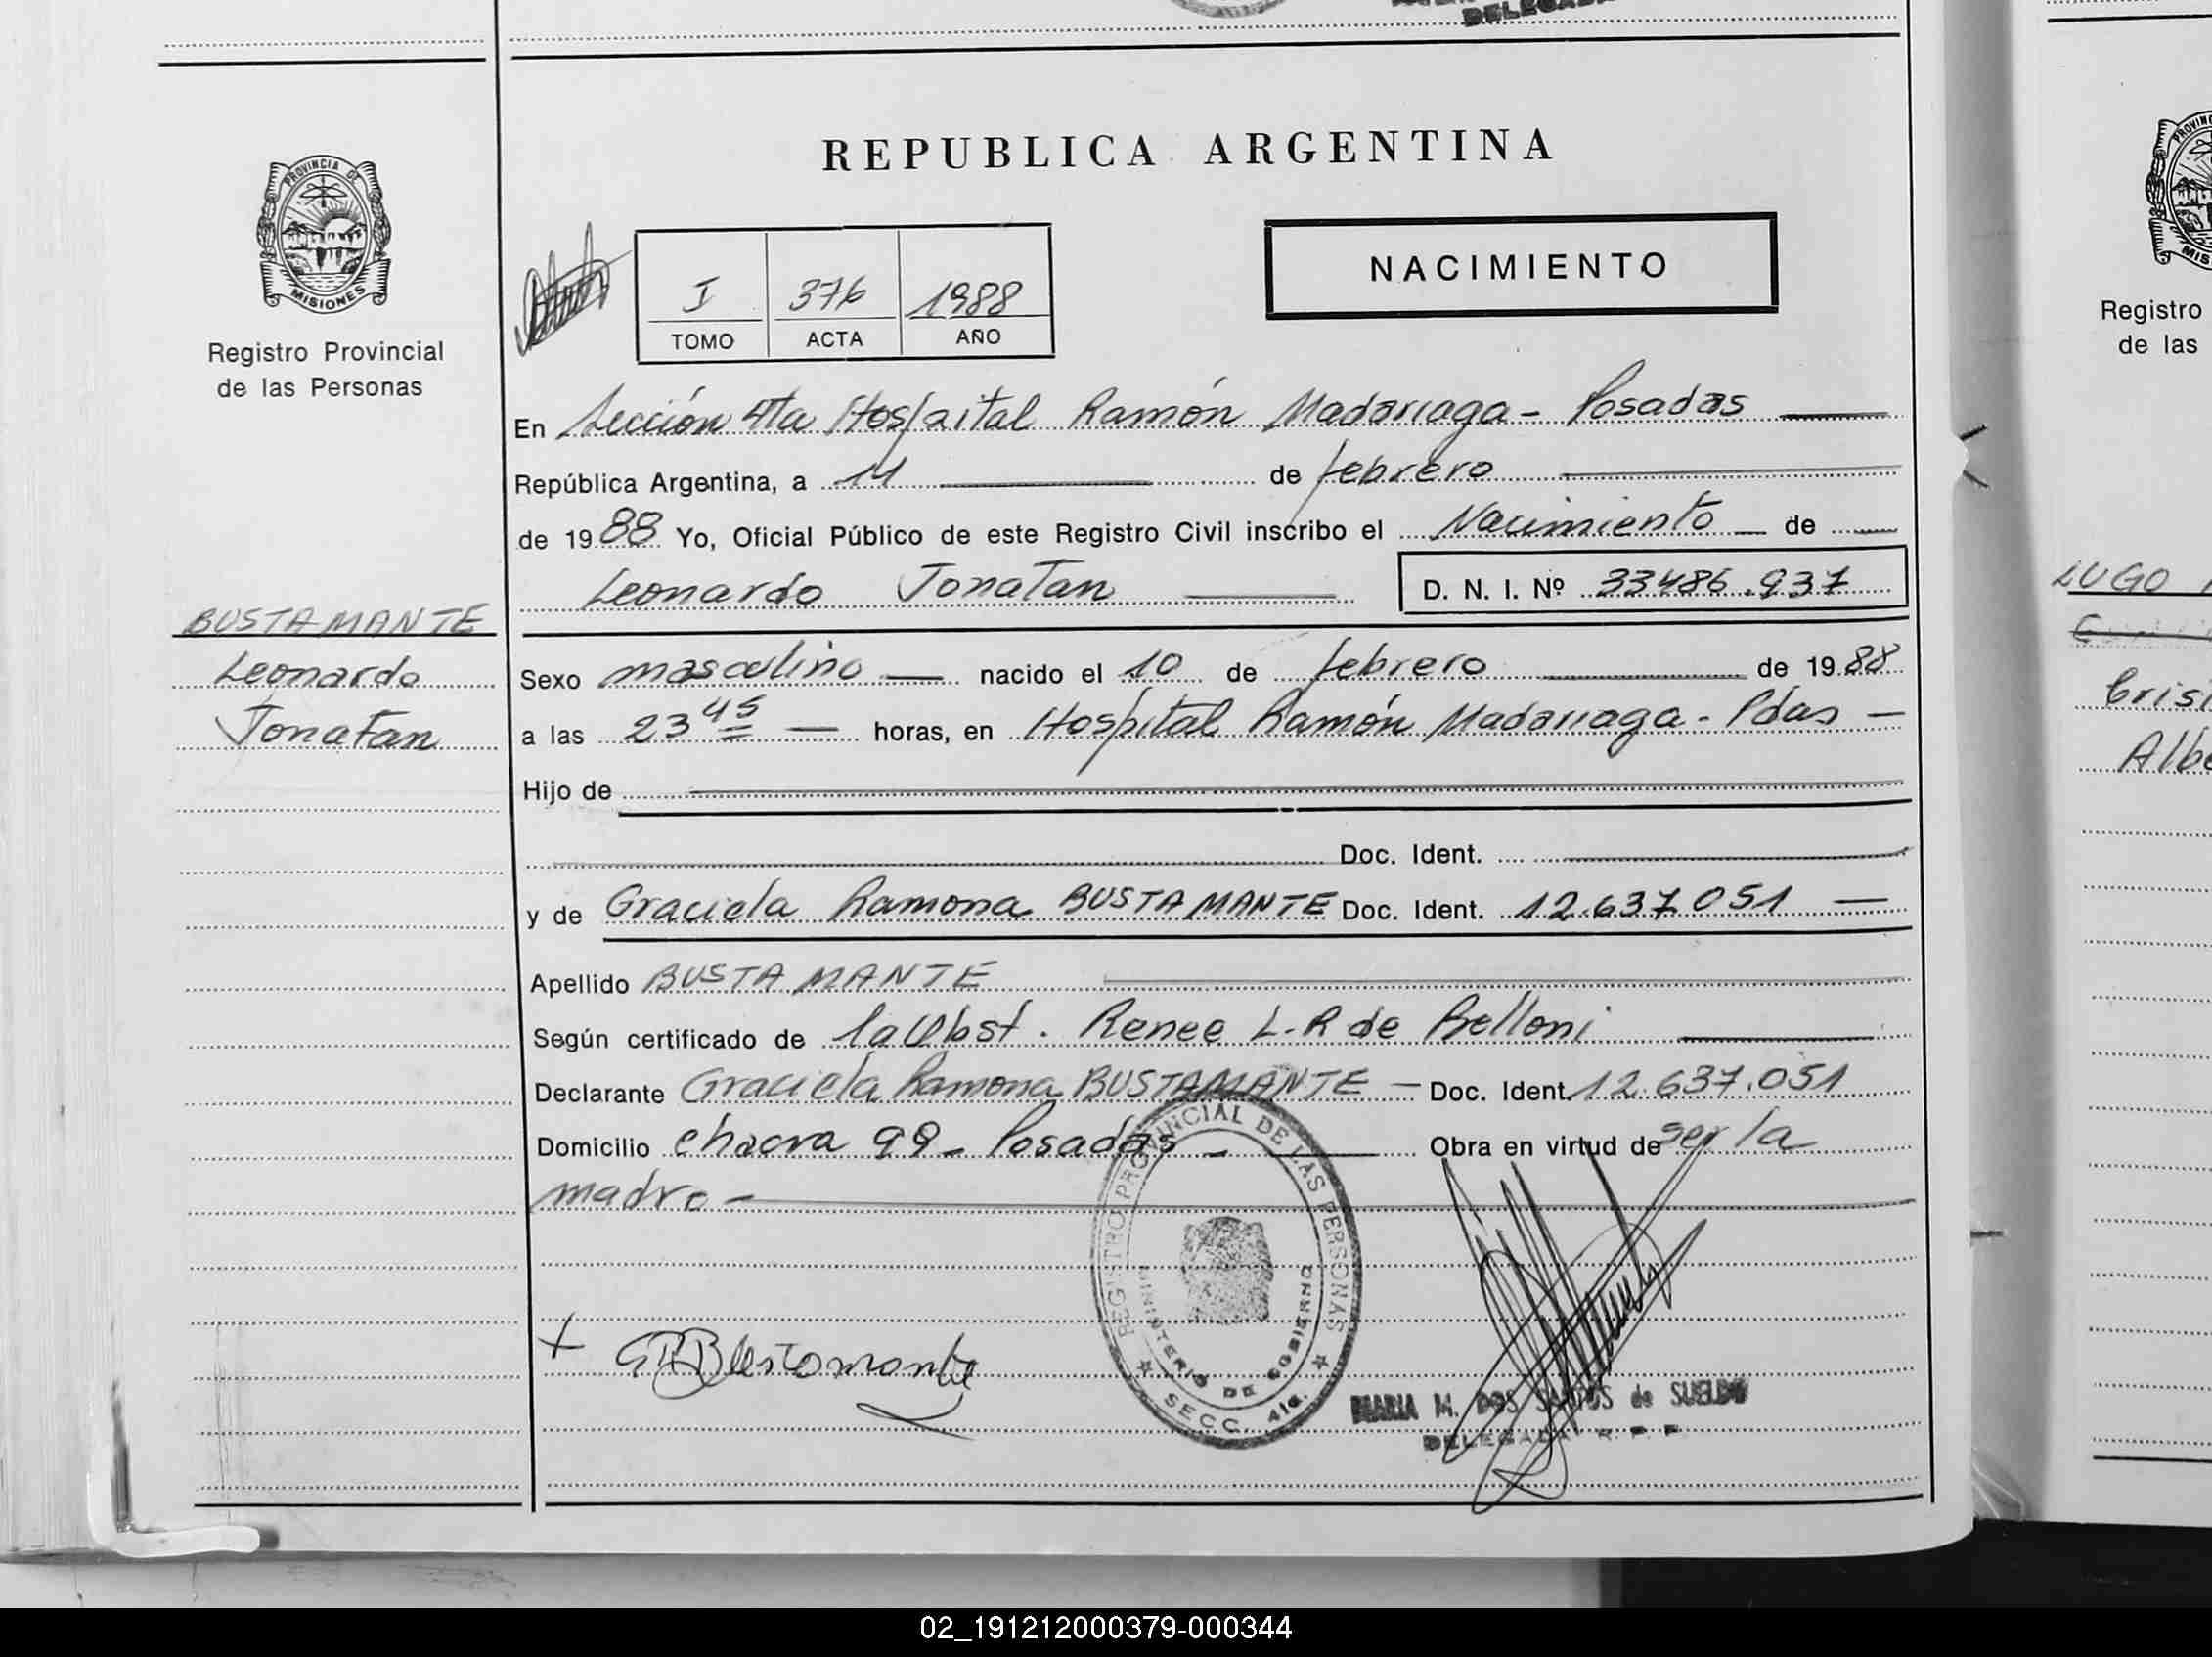 DELEGADA
REPUBLICA ARGENTINA
PROVINCIA DE
MISIONES
Registro Provincial
de las Personas
I 376 1988
TOMO ACTA AÑO
NACIMIENTO
En Sección 4ta Hospital Ramón Madariaga - Posadas
República Argentina, a 11 de febrero
de 1988 Yo, Oficial Público de este Registro Civil inscribo el Nacimiento de
Leonardo Jonatan D. N. I. Nº 33486.937
BUSTAMANTE
Leonardo
Jonatan
Sexo masculino nacido el 10 de febrero de 1988
a las 23 45 horas, en Hospital Ramón Madariaga - Pdas -
Hijo de
Doc. Ident.
y de Graciela Ramona BUSTAMANTE Doc. Ident. 12.637.051
Apellido BUSTAMANTE
Según certificado de la Obst. Renee L.R de Belloni
Declarante Graciela Ramona BUSTAMANTE - Doc. Ident. 12.637.051
Domicilio chacra 99 - Posadas - Obra en virtud de ser la
madre -
REGISTRO PROVINCIAL DE LAS PERSONAS
MINISTERIO DE GOBIERNO
SECC. 4ta.
+ GRBustamante
MARIA M. DOS SANTOS de SUELDO
DELEGADA R. P. P.
Registro
de las
LUGO
Cris
Albe
02_191212000379-000344